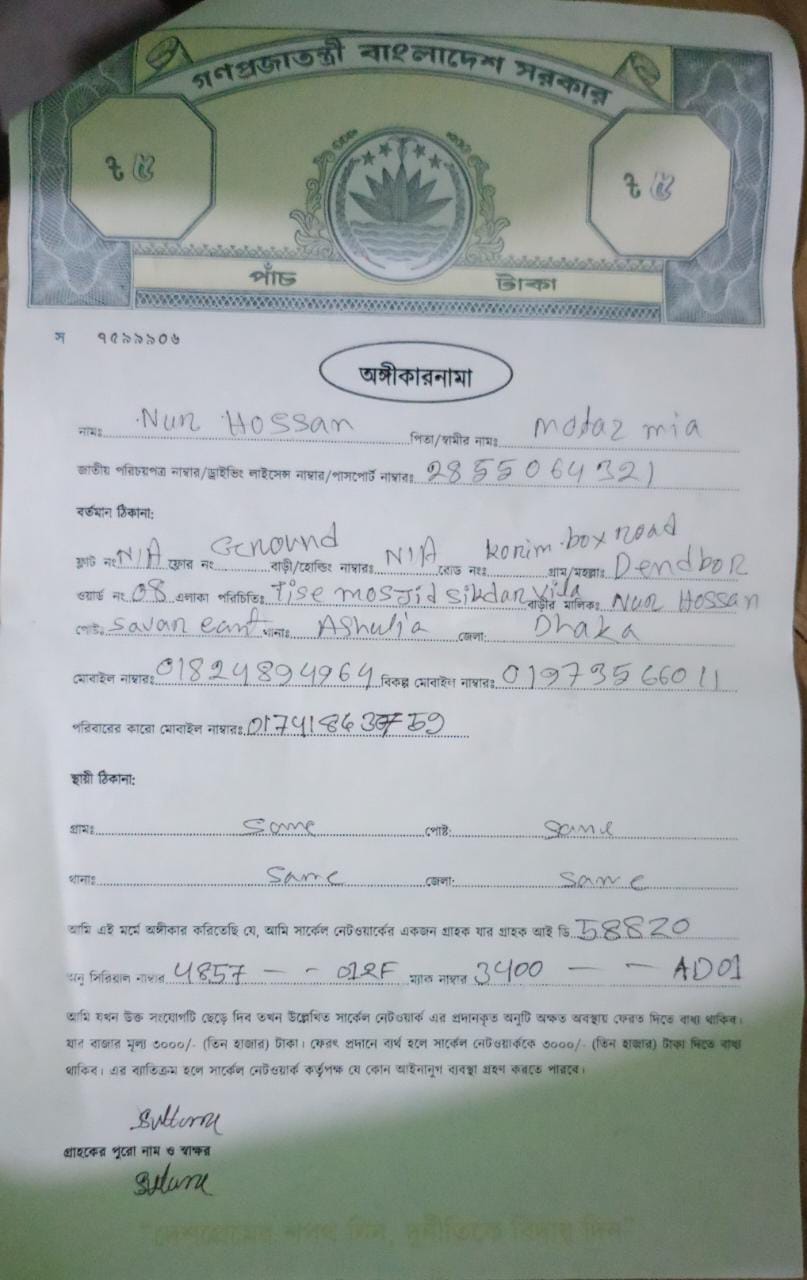 গণপ্রজাতন্ত্রী বাংলাদেশ সরকার
৳ ৫ ৳ ৫
পাঁচ টাকা
স ৭৫৯৯৯০৬
অঙ্গীকারনামা
নামঃ Nur Hossan পিতা/স্বামীর নামঃ motaz mia
জাতীয় পরিচয়পত্র নাম্বার/ড্রাইভিং লাইসেন্স নাম্বার/পাসপোর্ট নাম্বারঃ 2855064321
বর্তমান ঠিকানা:
ফ্লাট নং N/A ফ্লোর নং Ground বাড়ী/হোল্ডিং নাম্বারঃ N/A রোড নংঃ korim box road গ্রাম/মহল্লাঃ Dendbor
ওয়ার্ড নং 08 এলাকা পরিচিতিঃ Tise mosjid sikdar Vila বাড়ীর মালিকঃ Nur Hossan
পোষ্টঃ Savar east থানাঃ Ashulia জেলা: Dhaka
মোবাইল নাম্বারঃ 01824894964 বিকল্প মোবাইল নাম্বারঃ 01973566011
পরিবারের কারো মোবাইল নাম্বারঃ
স্থায়ী ঠিকানা:
গ্রামঃ Same পোষ্ট: Same
থানাঃ Same জেলা: Same
আমি এই মর্মে অঙ্গীকার করিতেছি যে, আমি সার্কেল নেটওয়ার্কের একজন গ্রাহক যার গ্রাহক আই ডি 58820
অনু সিরিয়াল নাম্বার 4857 - - 012F ম্যাক নাম্বার 3400 - - AD01
আমি যখন উক্ত সংযোগটি ছেড়ে দিব তখন উল্লেখিত সার্কেল নেটওয়ার্ক এর প্রদানকৃত অনুটি অক্ষত অবস্থায় ফেরত দিতে বাধ্য থাকিব।
যার বাজার মূল্য ৩০০০/- (তিন হাজার) টাকা। ফেরৎ প্রদানে ব্যর্থ হলে সার্কেল নেটওয়ার্ককে ৩০০০/- (তিন হাজার) টাকা দিতে বাধ্য
থাকিব। এর ব্যতিক্রম হলে সার্কেল নেটওয়ার্ক কর্তৃপক্ষ যে কোন আইনানুগ ব্যবস্থা গ্রহণ করতে পারবে।
গ্রাহকের পুরো নাম ও স্বাক্ষর
"দেশপ্রেমের শপথ নিন, দুর্নীতিকে বিদায় দিন"